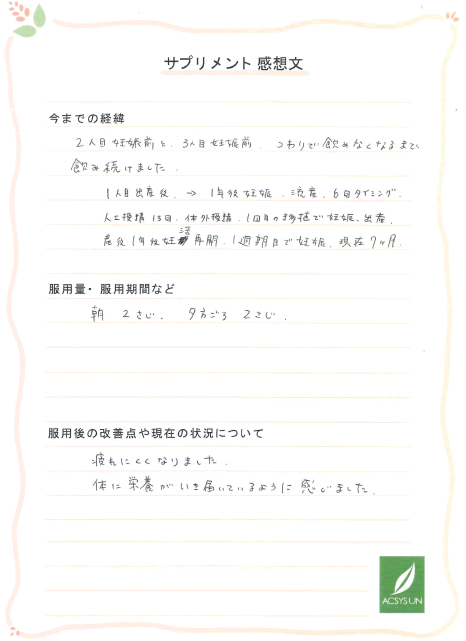 サプリメント 感想文
今までの経緯
2人目妊娠前と、3人目妊娠前、つわりで飲めなくなるまで
飲み続けました。
1人目出産後、→ 1年後妊娠、流産、6回タイミング、
人工授精13回、体外授精、1回目の移植で妊娠、出産、
産後1年後妊活再開、1週期目で妊娠、現在7ヶ月。
服用量・服用期間など
朝 2さじ、夕方ごろ 2さじ。
服用後の改善点や現在の状況について
疲れにくくなりました。
体に栄養がいき届いているように感じました。
ACSYSUN